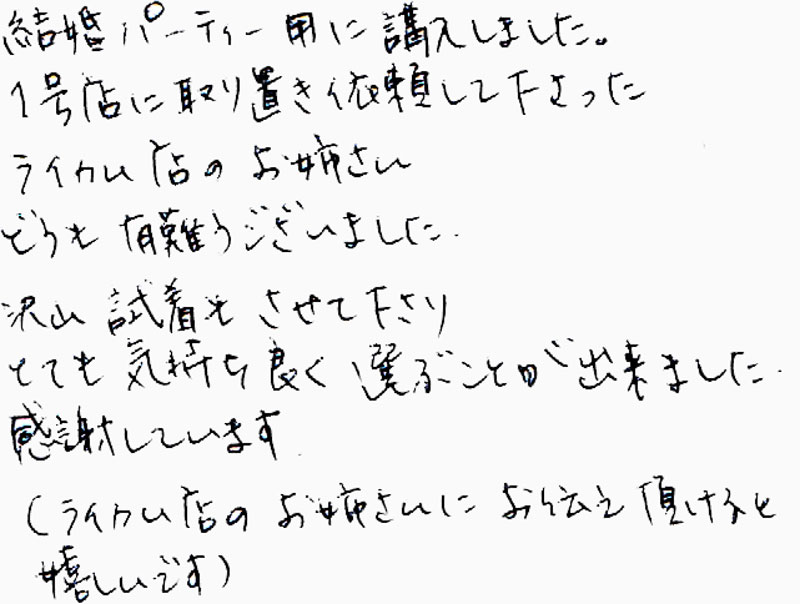 結婚パーティー用に購入しました。
1号店に取り置き依頼して下さった
ライカム店のお姉さん
どうも有難うございました.
沢山試着もさせて下さり
とても気持ち良く選ぶことが出来ました.
感謝しています.
(ライカム店のお姉さんにお伝え頂けると
嬉しいです)